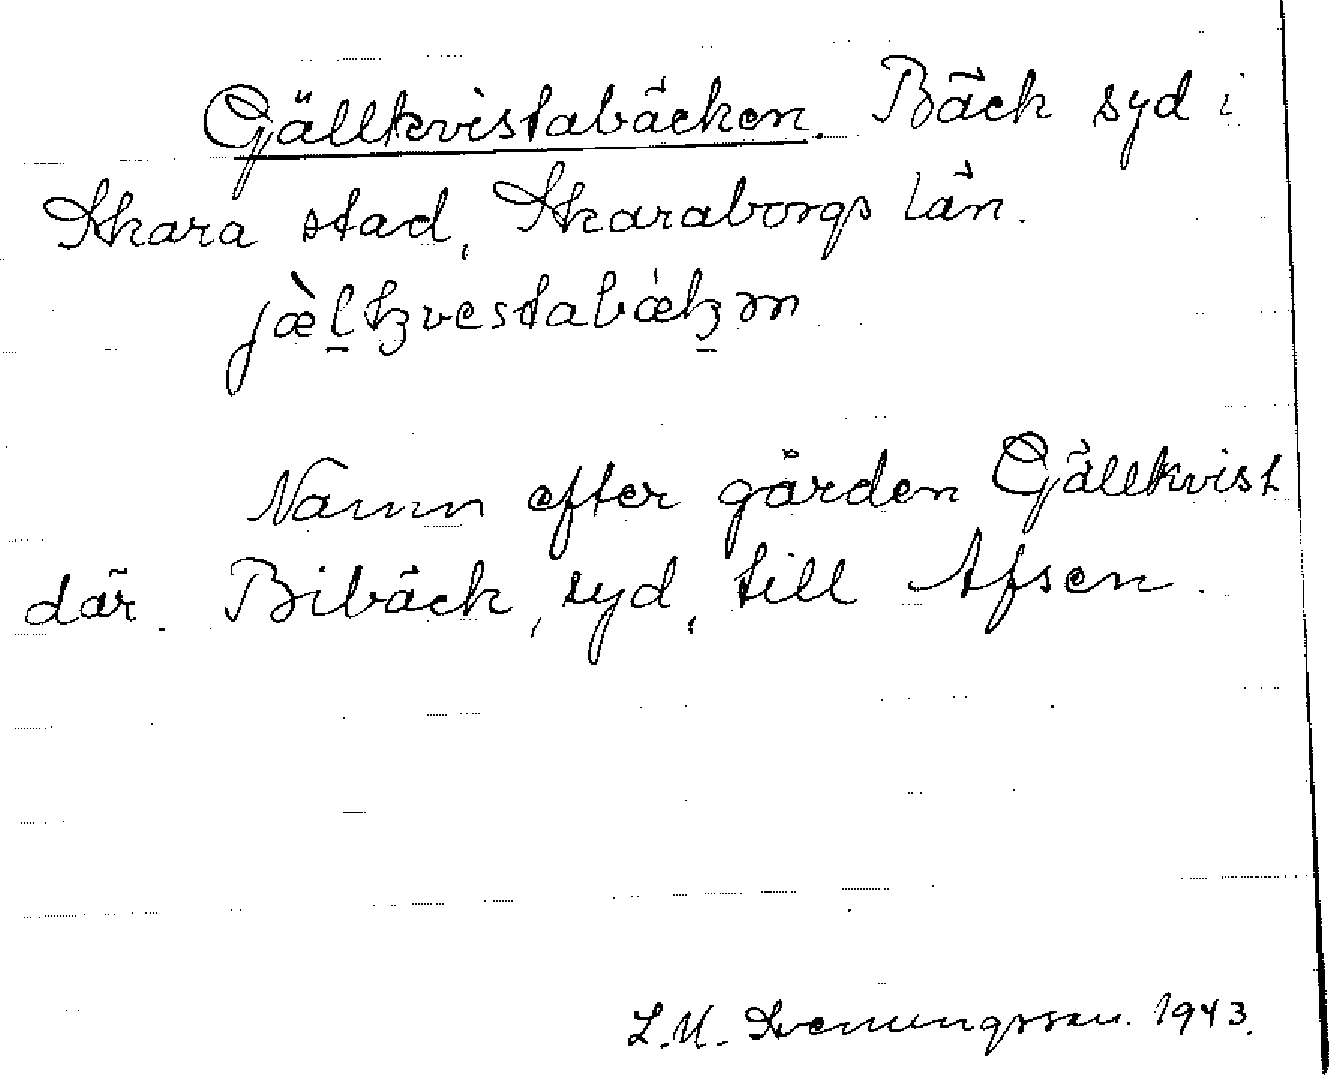 Gällkvistabäcken. Bäck syd i
Skara stad, Skaraborgs län.
jæ̀l̠kvestabækən
Namn efter gården Gällkvist
där. Bibäck, syd, till Afsen.
L.M. Svenungsson. 1943.